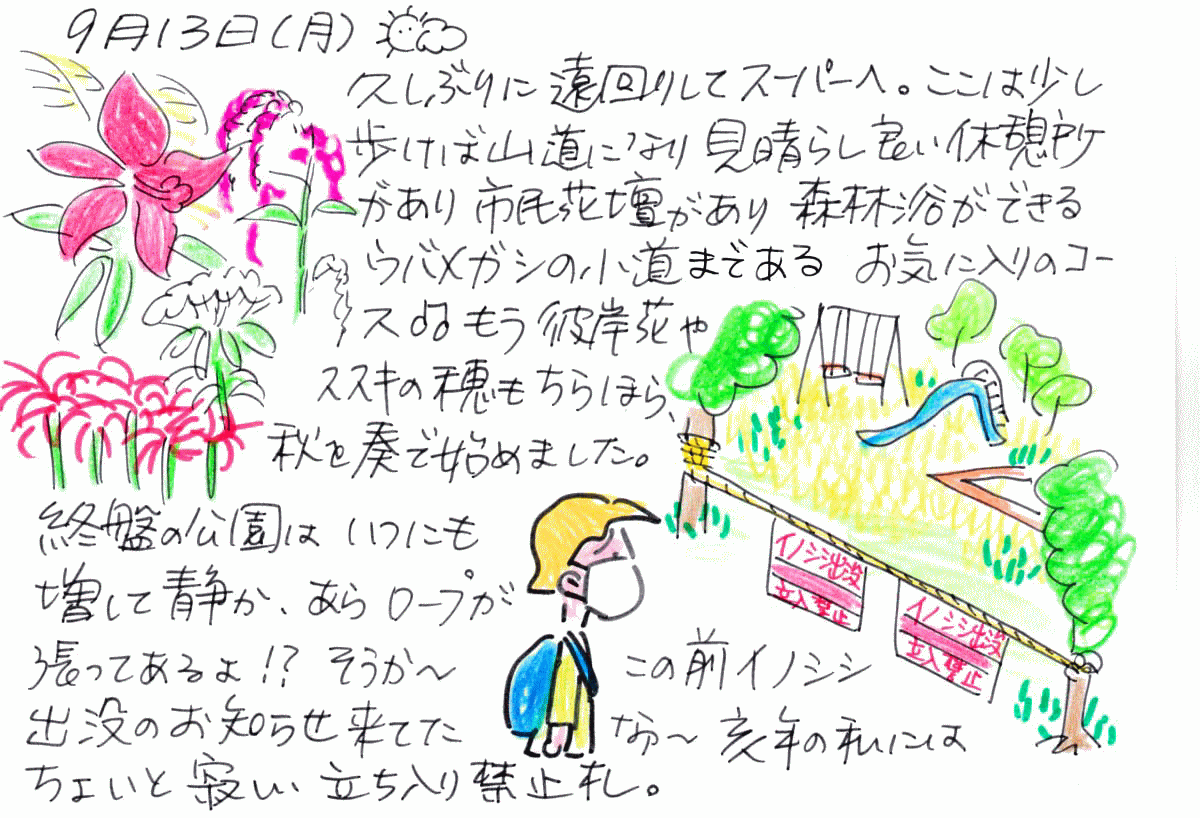 9月13日(月)
久しぶりに遠回りしてスーパーへ。ここは少し
歩けば山道になり見晴らし良い休憩所
があり市民花壇があり森林浴ができる
ウバメガシの小道まである お気に入りのコー
ス もう彼岸花や
ススキの穂もちらほら、
秋を奏で始めました。
終盤の公園は いつにも
増して静か、あらロープが
張ってあるよ!? そうか〜 この前イノシシ
出没のお知らせ来てた なぁ〜 亥年の私には
ちょいと寂しい 立ち入り禁止札。
イノシシ出没
立入禁止
イノシシ出没
立入禁止